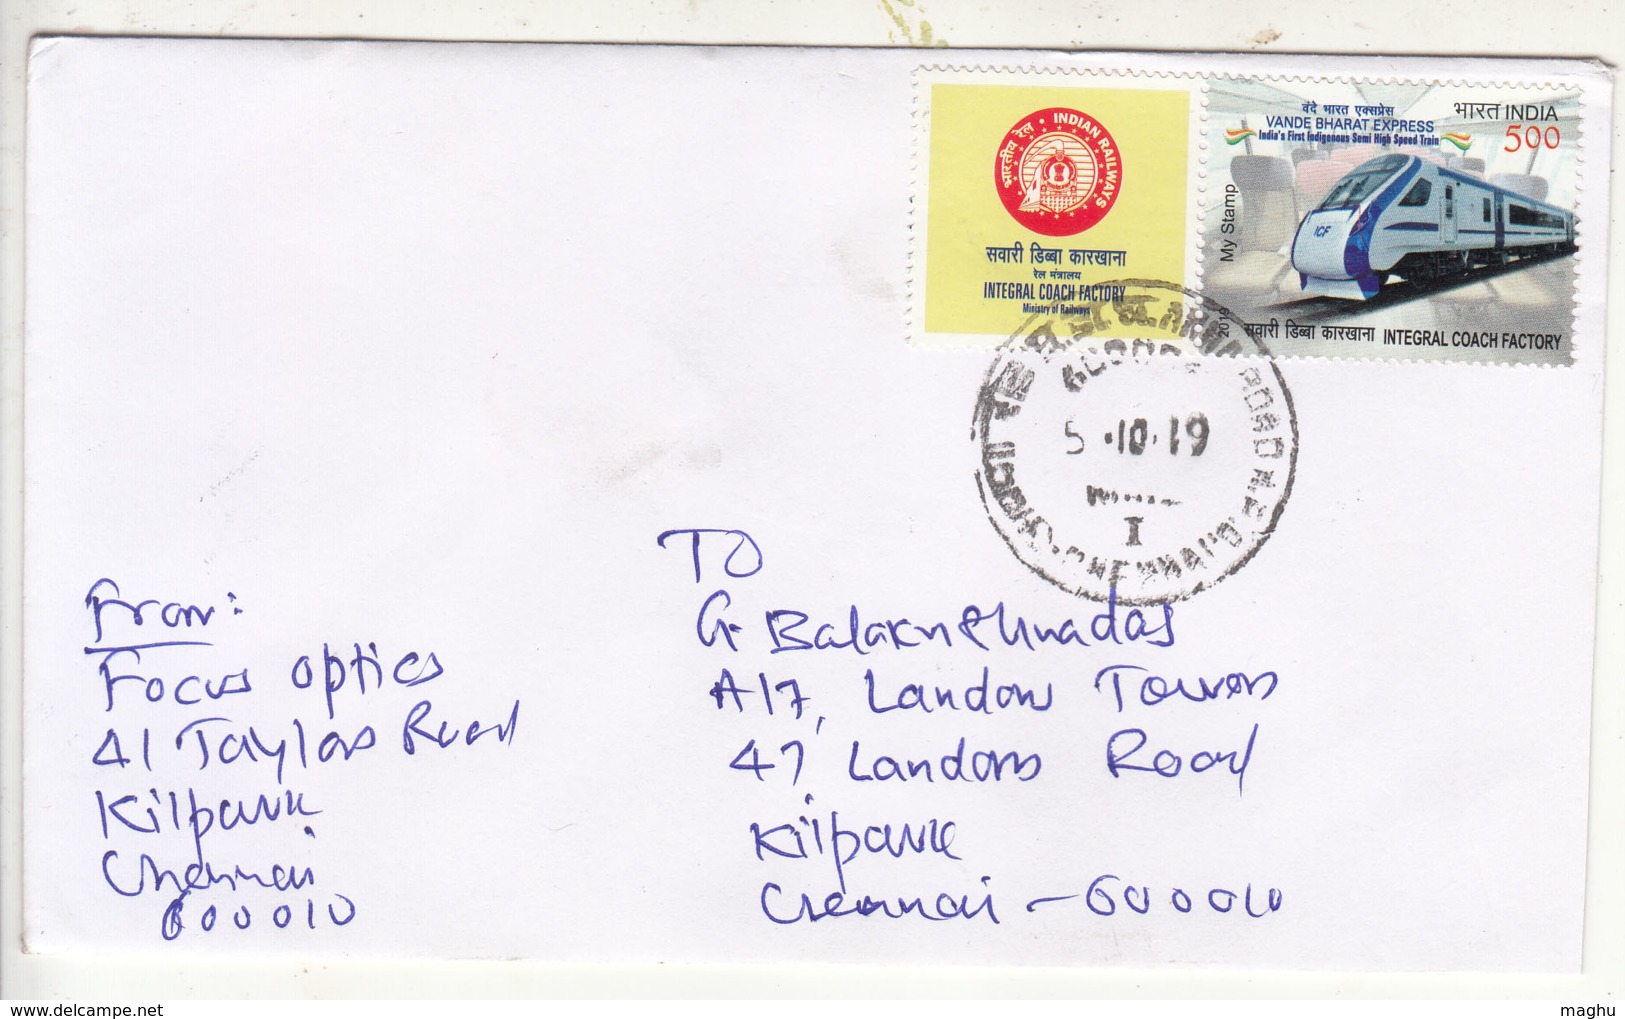 भारतीय रेल • INDIAN RAILWAYS
सवारी डिब्बा कारखाना
रेल मंत्रालय
INTEGRAL COACH FACTORY
Ministry of Railways
वंदे भारत एक्सप्रेस
VANDE BHARAT EXPRESS
India's First Indigenous Semi High Speed Train
भारत INDIA
500
My Stamp
2019
ICF
सवारी डिब्बा कारखाना INTEGRAL COACH FACTORY
ROAD
5 .10.19
I
CHENNAI
From:
Focus optics
41 Taylors Road
Kilpauk
Chennai
600010
To
G. Balakrishnadas
A17, Landons Towers
47 Landons Road
Kilpauk
Chennai - 600010
www.delcampe.net
maghu